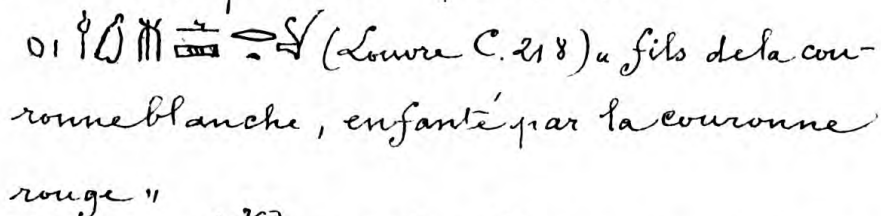 (Louvre C. 218) « fils de la cou-
ronne blanche, enfanté par la couronne
rouge »